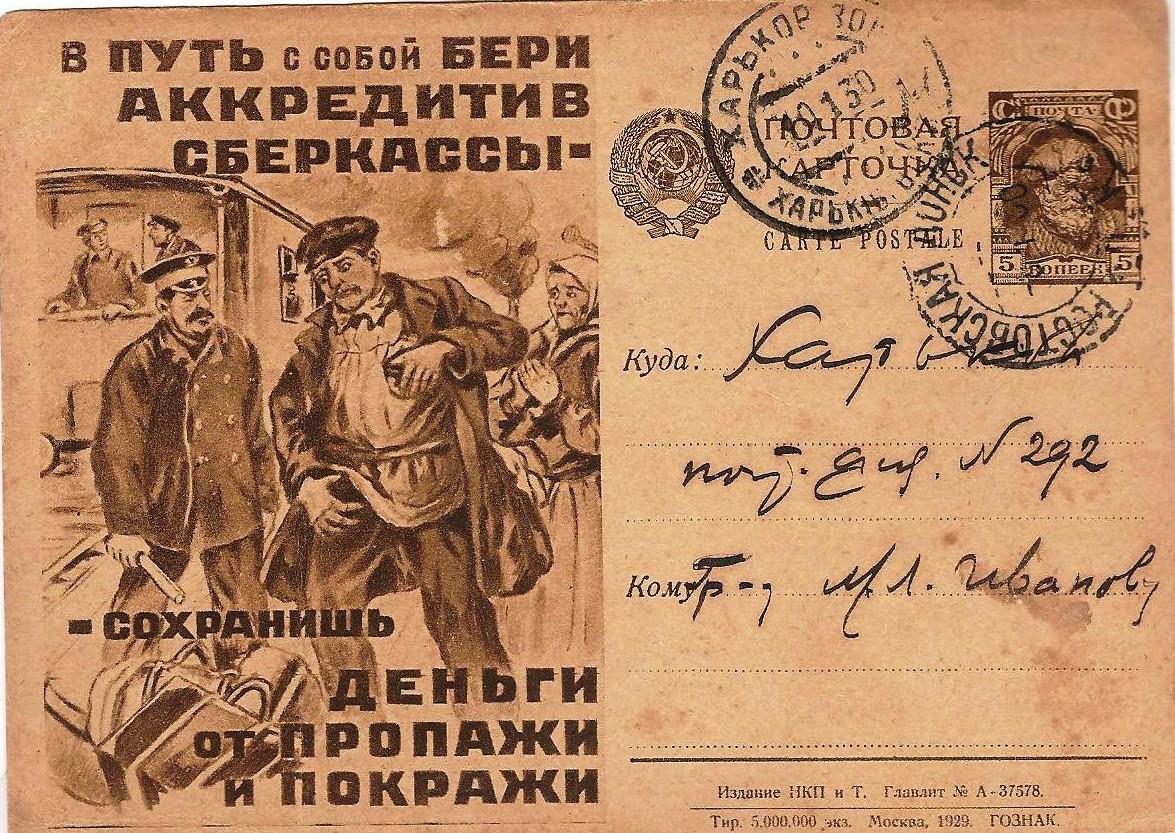 В ПУТЬ С СОБОЙ БЕРИ
АККРЕДИТИВ
СБЕРКАССЫ-
- СОХРАНИШЬ
ДЕНЬГИ
ОТ ПРОПАЖИ
И ПОКРАЖИ
ПОЧТОВАЯ
КАРТОЧКА
CARTE POSTALE
ПОЧТА
5 КОПЕЕК 5
Куда:
№ 292
Кому: Гр-у М.Л. Иванову
Издание НКП и Т. Главлит № А-37578.
Тир. 5.000.000 экз. Москва, 1929. ГОЗНАК.